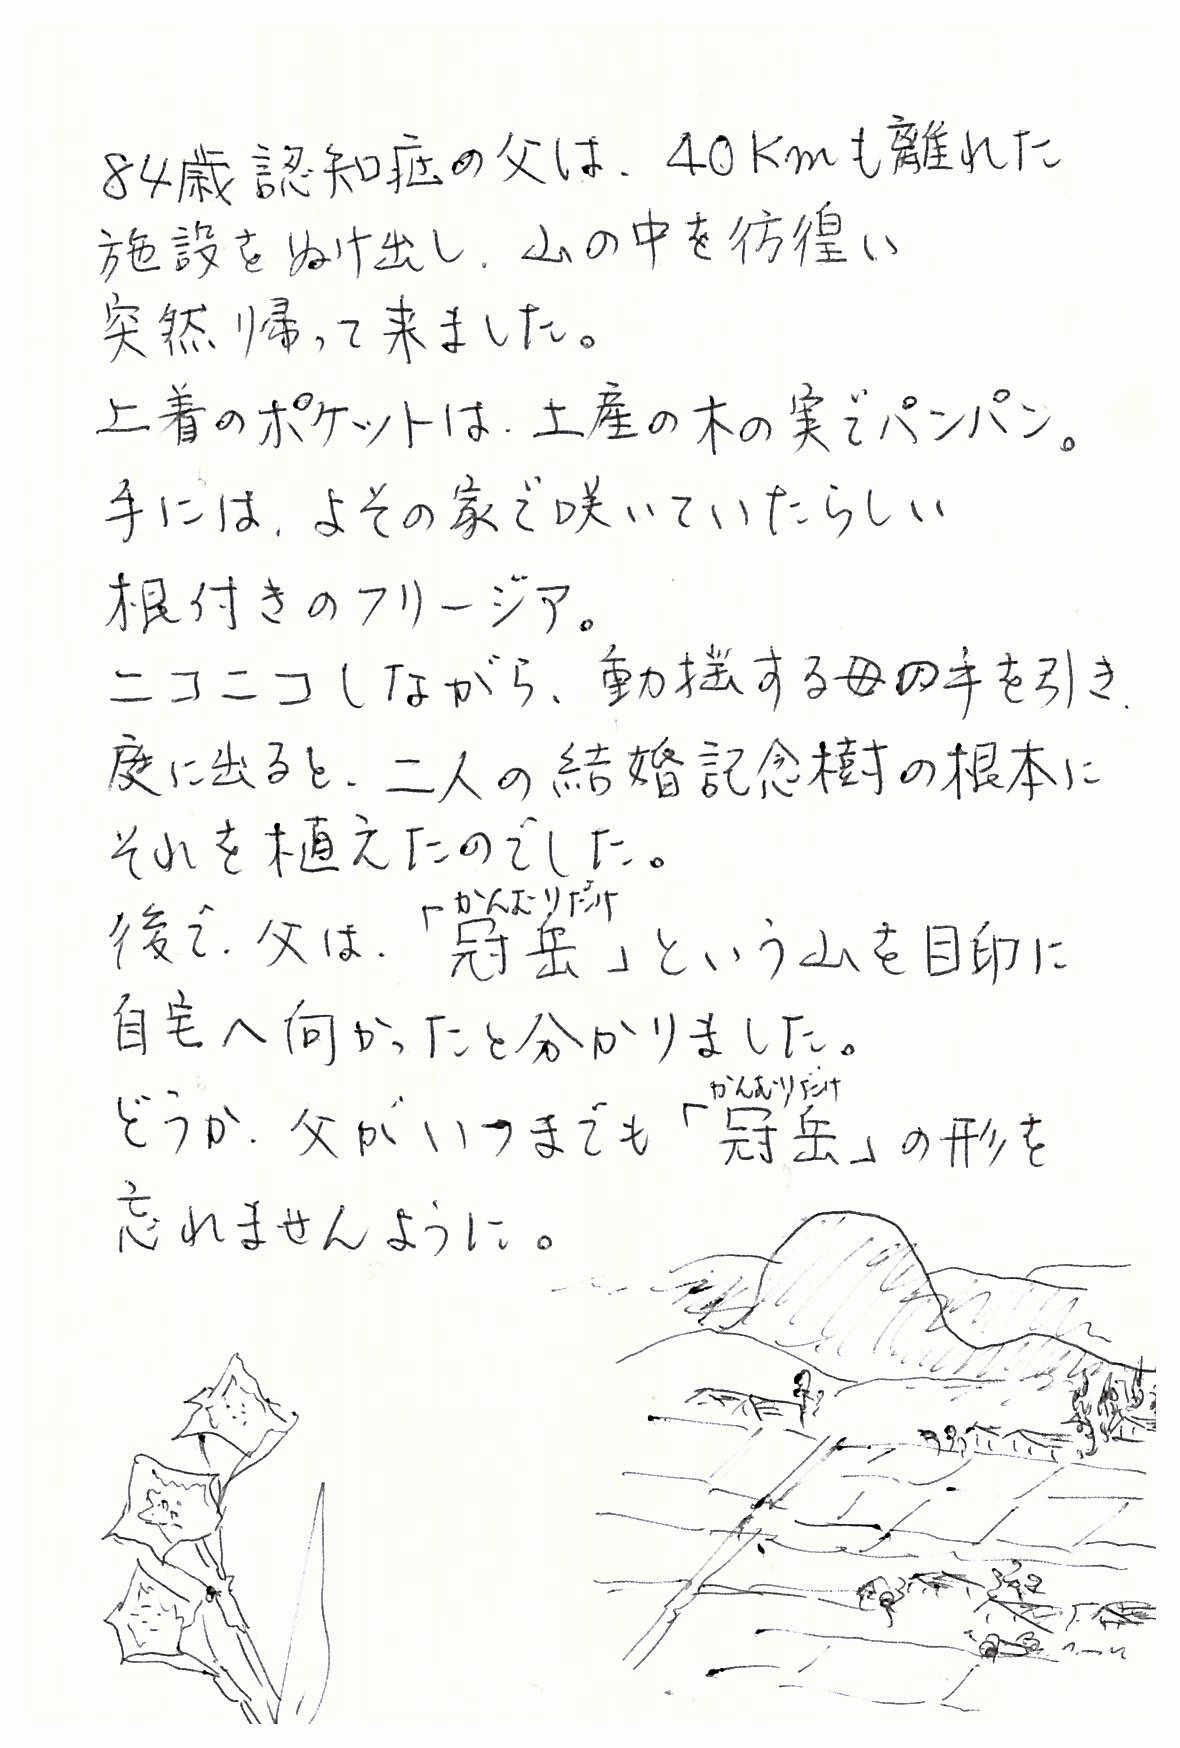 84歳認知症の父は、40Kmも離れた
施設をぬけ出し、山の中を彷徨い
突然帰って来ました。
上着のポケットは、土産の木の実でパンパン。
手には、よその家で咲いていたらしい
根付きのフリージア。
ニコニコしながら、動揺する母の手を引き、
庭に出ると、二人の結婚記念樹の根本に
それを植えたのでした。
かんむりだけ
後で、父は、「冠岳」という山を目印に
自宅へ向かったと分かりました。
かんむりだけ
どうか、父がいつまでも「冠岳」の形を
忘れませんように。